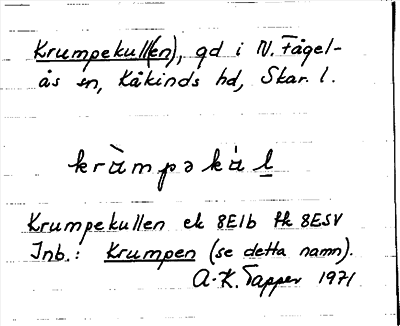 Krumpekull(en), gd i N. Fågel-
ås sn, Kåkinds hd, Skar. l.
kràmpəkà l
Krumpekullen ek 8E1b fk 8ESV
Inb.: Krumpen (se detta namn).
A-K. Tapper 1971